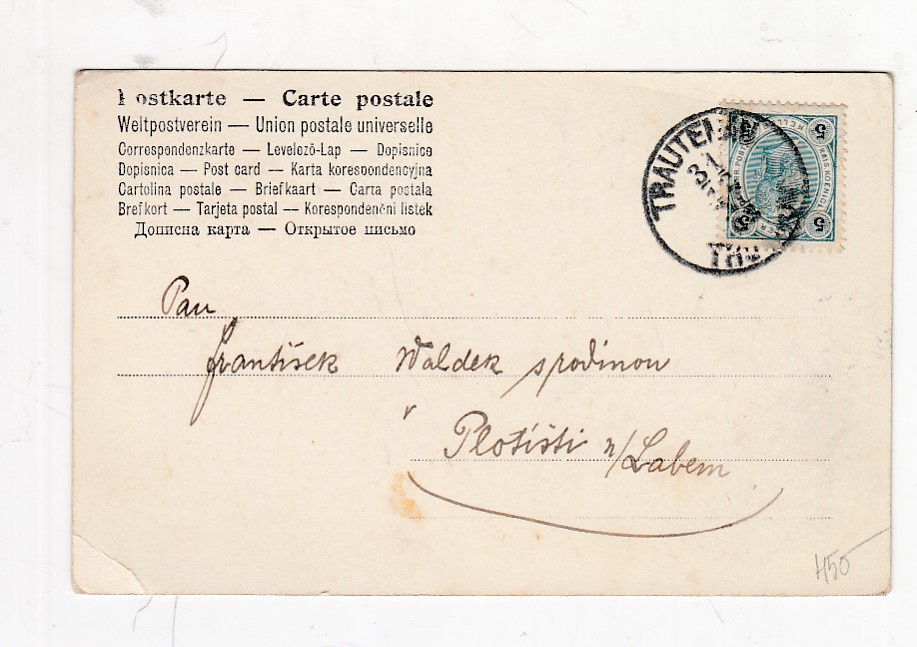 Postkarte — Carte postale
Weltpostverein — Union postale universelle
Correspondenzkarte — Levelező-Lap — Dopisnice
Dopisnica — Post card — Karta korespondencyjna
Cartolina postale — Briefkaart — Carta postala
Brefkort — Tarjeta postal — Korespondenčni listek
Дописна карта — Открытое письмо
TRAUTENAU
31
5
5
5
5
Pan
František Waldek s rodinou
v
Plotišti n/Labem
450